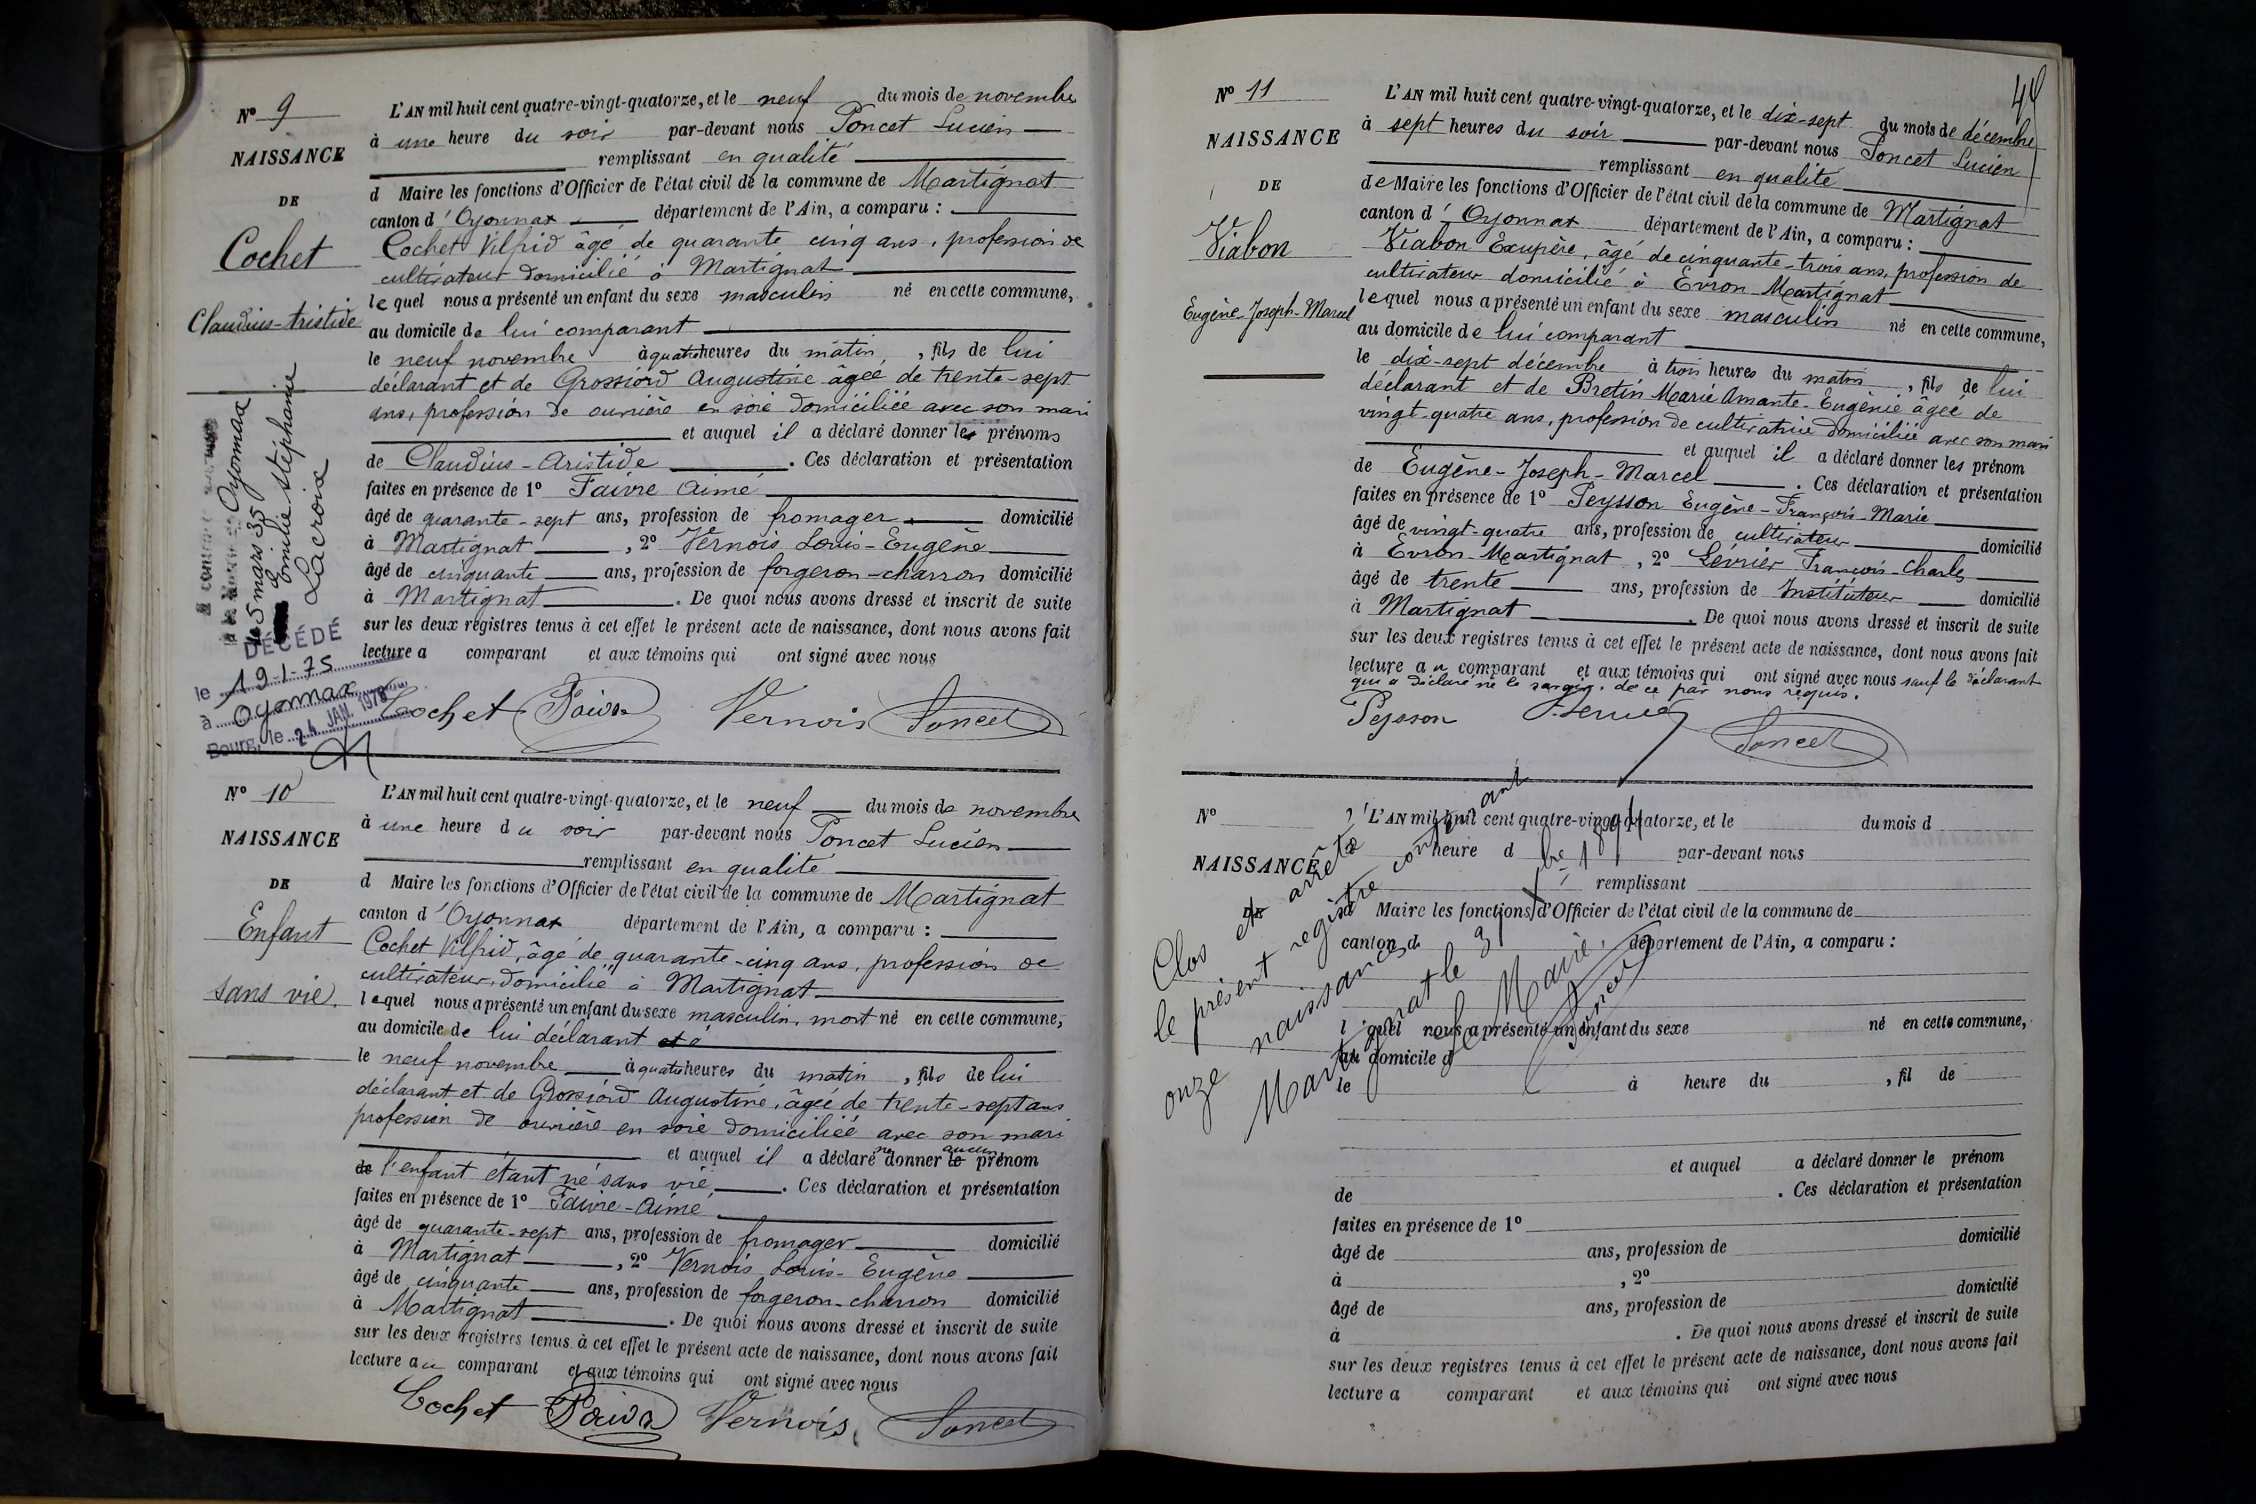 Nº 9
NAISSANCE
DE
Cochet
Claudius-Aristide
L'AN mil huit cent quatre-vingt-quatorze, et le neuf du mois de novembre
à une heure du soir par-devant nous Poncet Lucien
remplissant en qualité
d Maire les fonctions d'Officier de l'état civil de la commune de Martignat
canton d'Oyonnax département de l'Ain, a comparu :
Cochet Vilfrid âgé de quarante cinq ans, profession de
cultivateur domicilié à Martignat
lequel nous a présenté un enfant du sexe masculin né en cette commune,
au domicile de lui comparant
le neuf novembre à quatre heures du matin, fils de lui
déclarant et de Grossiord Augustine âgée de trente-sept
ans, profession de ouvrière en soie domiciliée avec son mari
et auquel il a déclaré donner les prénoms
de Claudius-Aristide. Ces déclaration et présentation
faites en présence de 1º Faivre Aimé
âgé de quarante-sept ans, profession de fromager domicilié
à Martignat, 2º Vernois Louis-Eugène
âgé de cinquante ans, profession de forgeron-charron domicilié
à Martignat. De quoi nous avons dressé et inscrit de suite
sur les deux registres tenus à cet effet le présent acte de naissance, dont nous avons fait
lecture a comparant et aux témoins qui ont signé avec nous
Cochet Faivre Vernois Poncet
Oyonnax
le 5 mars 35
Emilie Stéphanie
Lacroix
DÉCÉDÉ
le 19-1-75
à Oyonnax
Bourg, le 24 JAN. 1975
Nº 10
NAISSANCE
DE
Enfant
sans vie.
L'AN mil huit cent quatre-vingt-quatorze, et le neuf du mois de novembre
à une heure du soir par-devant nous Poncet Lucien
remplissant en qualité
d Maire les fonctions d'Officier de l'état civil de la commune de Martignat
canton d'Oyonnax département de l'Ain, a comparu :
Cochet Vilfrid, âgé de quarante-cinq ans, profession de
cultivateur, domicilié à Martignat
lequel nous a présenté un enfant du sexe masculin, mort né en cette commune,
au domicile de lui déclarant et à
le neuf novembre à quatre heures du matin, fils de lui
déclarant et de Grossiord Augustine, âgée de trente-sept ans
profession de ouvrière en soie domiciliée avec son mari
et auquel il a déclaré ne donner le aucun prénom
de l'enfant étant né sans vie. Ces déclaration et présentation
faites en présence de 1º Faivre-Aimé
âgé de quarante-sept ans, profession de fromager domicilié
à Martignat, 2º Vernois Louis-Eugène
âgé de cinquante ans, profession de forgeron-charron domicilié
à Martignat. De quoi nous avons dressé et inscrit de suite
sur les deux registres tenus à cet effet le présent acte de naissance, dont nous avons fait
lecture au comparant et aux témoins qui ont signé avec nous
Cochet Faivre Vernois Poncet
Nº 11
NAISSANCE
DE
Viabon
Eugène-Joseph-Marcel
L'AN mil huit cent quatre-vingt-quatorze, et le dix-sept du mois de décembre
à sept heures du soir par-devant nous Poncet Lucien
remplissant en qualité
de Maire les fonctions d'Officier de l'état civil de la commune de Martignat
canton d'Oyonnax département de l'Ain, a comparu :
Viabon Exupère, âgé de cinquante-trois ans, profession de
cultivateur domicilié à Evron Martignat
lequel nous a présenté un enfant du sexe masculin né en cette commune,
au domicile de lui comparant
le dix-sept décembre à trois heures du matin, fils de lui
déclarant et de Bretin Marie Amante-Eugénie âgée de
vingt-quatre ans, profession de cultivatrice domiciliée avec son mari
et auquel il a déclaré donner les prénom
de Eugène-Joseph-Marcel. Ces déclaration et présentation
faites en présence de 1º Peysson Eugène-François-Marie
âgé de vingt-quatre ans, profession de cultivateur domicilié
à Evron-Martignat, 2º Lévrier François-Charles
âgé de trente ans, profession de Instituteur domicilié
à Martignat. De quoi nous avons dressé et inscrit de suite
sur les deux registres tenus à cet effet le présent acte de naissance, dont nous avons fait
lecture au comparant et aux témoins qui ont signé avec nous sauf le déclarant
qui a déclaré ne le de ce par nous requis.
Peysson Poncet
Nº
NAISSANCE
DE
L'AN mil huit cent quatre-vingt-quatorze, et le du mois d
heure d par-devant nous
remplissant
Maire les fonctions d'Officier de l'état civil de la commune de
canton d département de l'Ain, a comparu :
l quel nous a présenté un enfant du sexe né en cette commune,
au domicile d
le à heure du , fil de
et auquel a déclaré donner le prénom
de . Ces déclaration et présentation
faites en présence de 1º
âgé de ans, profession de domicilié
à , 2º
âgé de ans, profession de domicilié
à . De quoi nous avons dressé et inscrit de suite
sur les deux registres tenus à cet effet le présent acte de naissance, dont nous avons fait
lecture a comparant et aux témoins qui ont signé avec nous
Clos et arrêté
le présent registre contenant
onze naissances
Martignat le 31 Xbre 1894
Le Maire,
Poncet